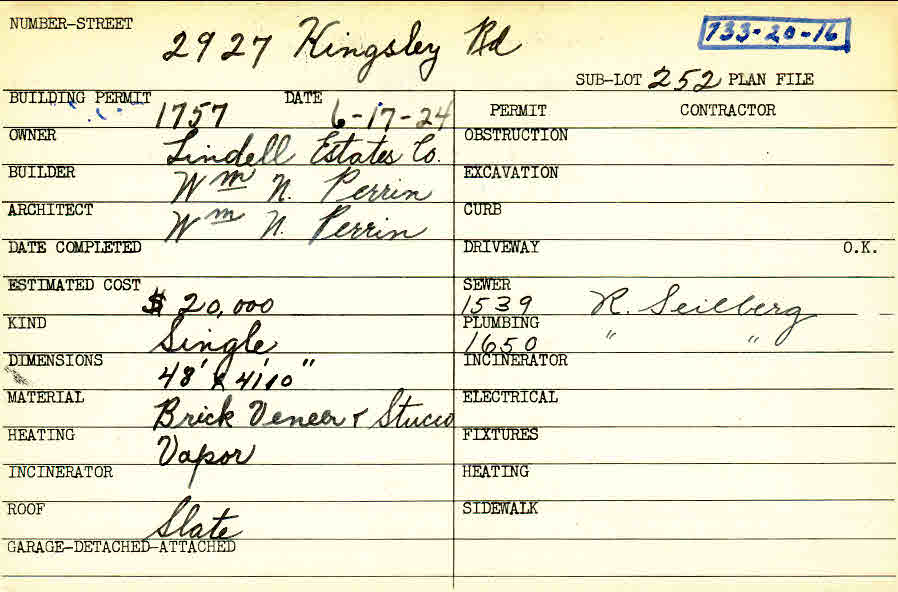 NUMBER-STREET 2927 Kingsley Rd 733-20-16
SUB-LOT 252 PLAN FILE
BUILDING PERMIT 1757 DATE 6-17-24
OWNER Lindell Estates Co.
BUILDER Wm N. Perrin
ARCHITECT Wm N. Perrin
DATE COMPLETED
ESTIMATED COST $ 20,000
KIND Single
DIMENSIONS 48' x 41'10"
MATERIAL Brick Veneer & Stucco
HEATING Vapor
INCINERATOR
ROOF Slate
GARAGE-DETACHED-ATTACHED
PERMIT CONTRACTOR
OBSTRUCTION
EXCAVATION
CURB
DRIVEWAY O.K.
SEWER 1539 R. Seilberg
PLUMBING 1650 " "
INCINERATOR
ELECTRICAL
FIXTURES
HEATING
SIDEWALK